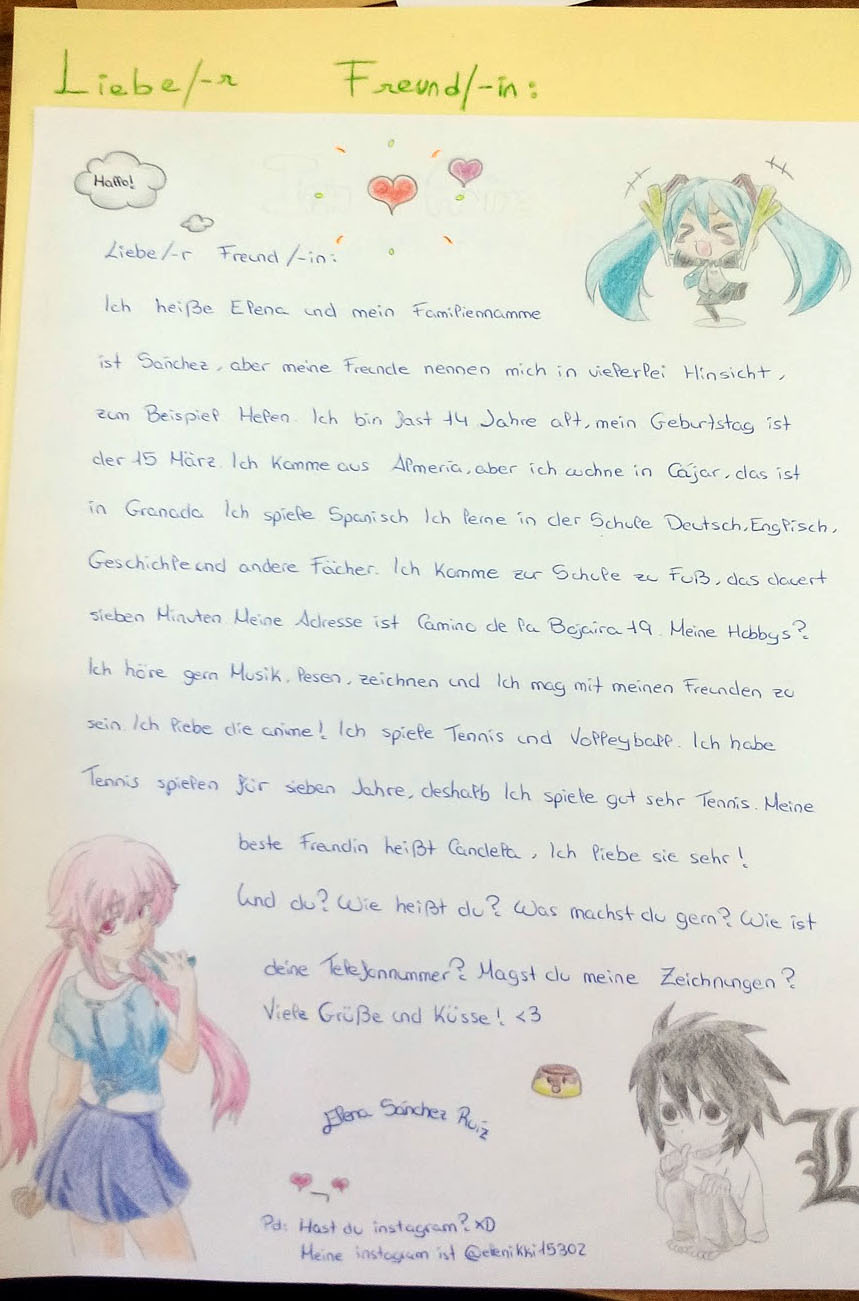 Liebe/-r Freund/-in:
Hallo!
Liebe/-r Freund/-in:
Ich heiße Elena und mein Familiennamme
ist Sánchez, aber meine Freunde nennen mich in vielerlei Hinsicht,
zum Beispiel Helen. Ich bin fast 14 Jahre alt, mein Geburtstag ist
der 15 März. Ich komme aus Almería, aber ich wohne in Cájar, das ist
in Granada. Ich spiele Spanisch. Ich lerne in der Schule Deutsch, Englisch,
Geschichte und andere Fächer. Ich komme zur Schule zu Fuß, das dauert
sieben Minuten. Meine Adresse ist Camino de la Bojaira 19. Meine Hobbys?
Ich höre gern Musik, lesen, zeichnen und Ich mag mit meinen Freunden zu
sein. Ich liebe die anime! Ich spiele Tennis und Volleyball. Ich habe
Tennis spielen für sieben Jahre, deshalb Ich spiele gut sehr Tennis. Meine
beste Freundin heißt Candela, Ich liebe sie sehr!
Und du? Wie heißt du? Was machst du gern? Wie ist
deine Telefonnummer? Magst du meine Zeichnungen?
Viele Grüße und Küsse! <3
Elena Sánchez Ruiz
L
Pd: Hast du instagram? xD
Meine instagram ist @elenikki15302